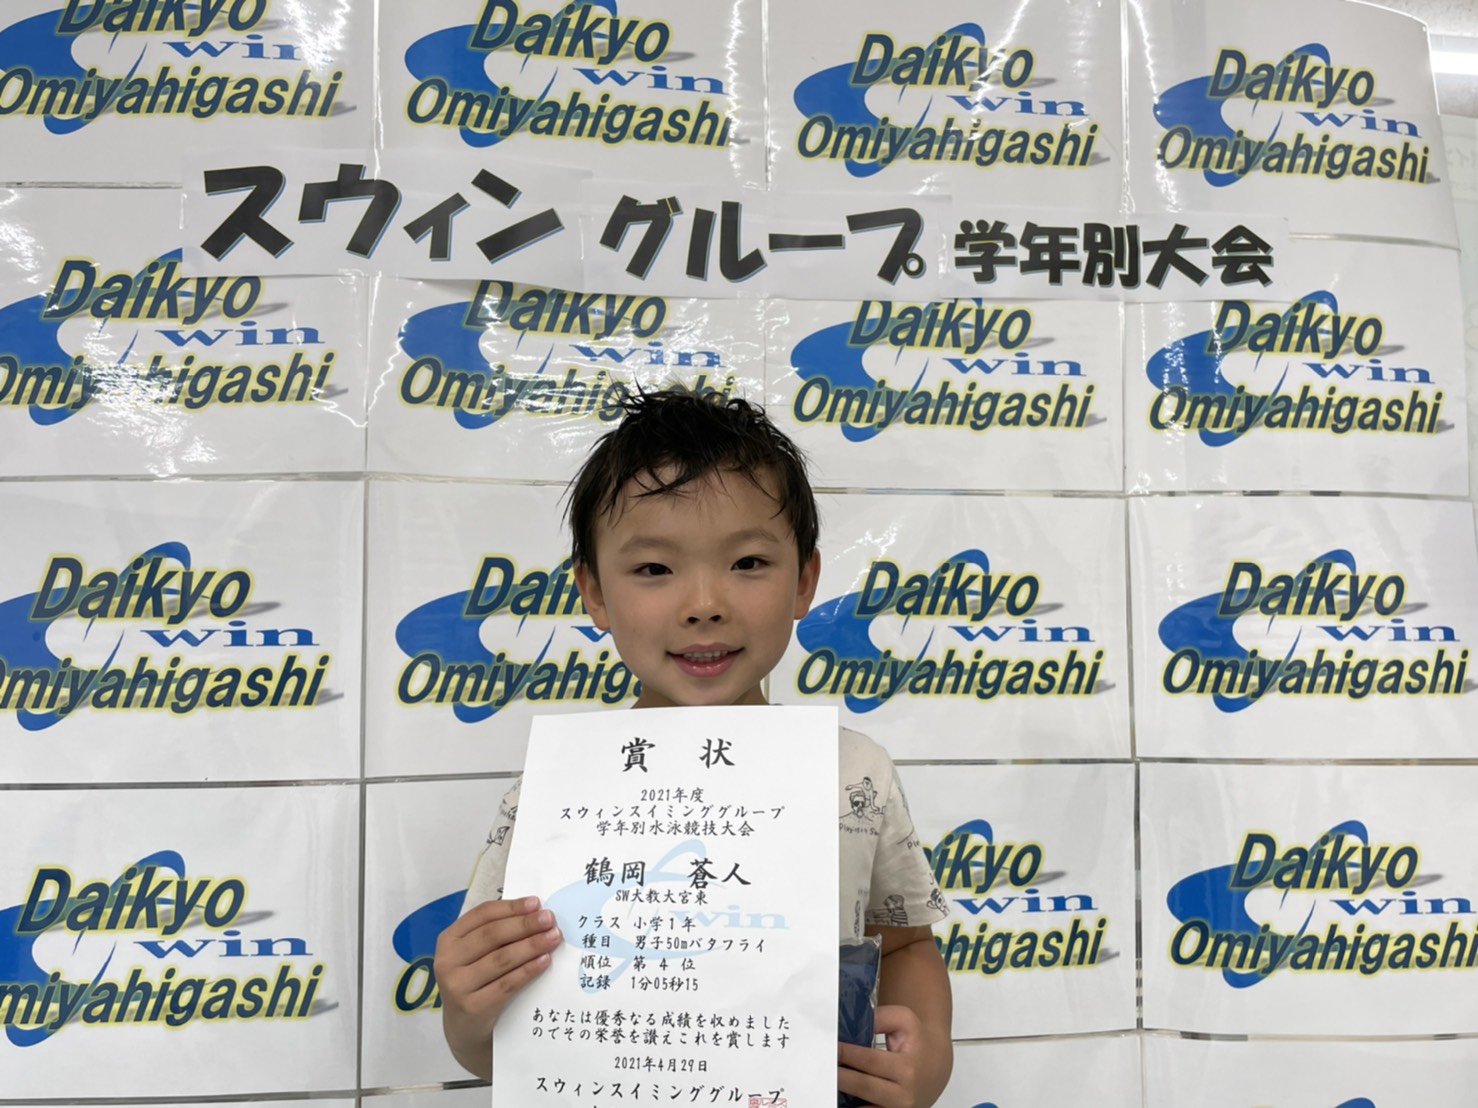 Daikyo
win
Omiyahigashi
Daikyo
win
Omiyahigashi
Daikyo
win
Omiyahigashi
Daikyo
win
Omiyahigashi
スウィン グループ 学年別大会
Daikyo
win
Omiyahigashi
Daikyo
win
Omiyahigashi
Daikyo
win
Omiyahigashi
Daikyo
win
Omiyahigashi
Daikyo
win
Omiyahigashi
Daikyo
win
Omiyahigashi
Daikyo
win
Omiyahigashi
Daikyo
win
Omiyahigashi
Daikyo
win
Omiyahigashi
Daikyo
win
Omiyahigashi
賞 状
2021年度
スウィンスイミンググループ
学年別水泳競技大会
鶴岡 蒼人
SW大教大宮東
クラス 小学1年
種目 男子50mバタフライ
順位 第 4 位
記録 1分05秒15
あなたは優秀なる成績を収めました
のでその栄誉を讃えこれを賞します
2021年4月29日
スウィンスイミンググループ
win
ikyo
win
Omiyahigashi